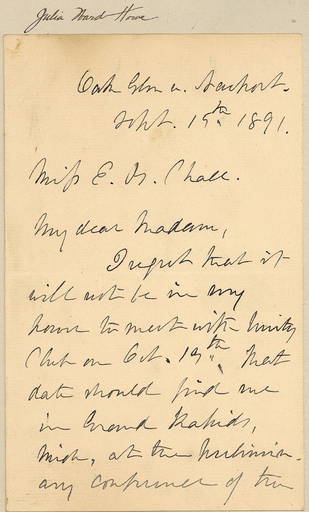 Julia Ward Howe
Oak Glen n. Newport.
Sept. 15th 1891.
Miss E. Chace.
My dear Madam,
I regret that it
will not be in my
power to meet with Unity
Club on Oct. 19th. That
date should find me
in Grand Rapids,
Mich, at the prelimin-
ary conference of the